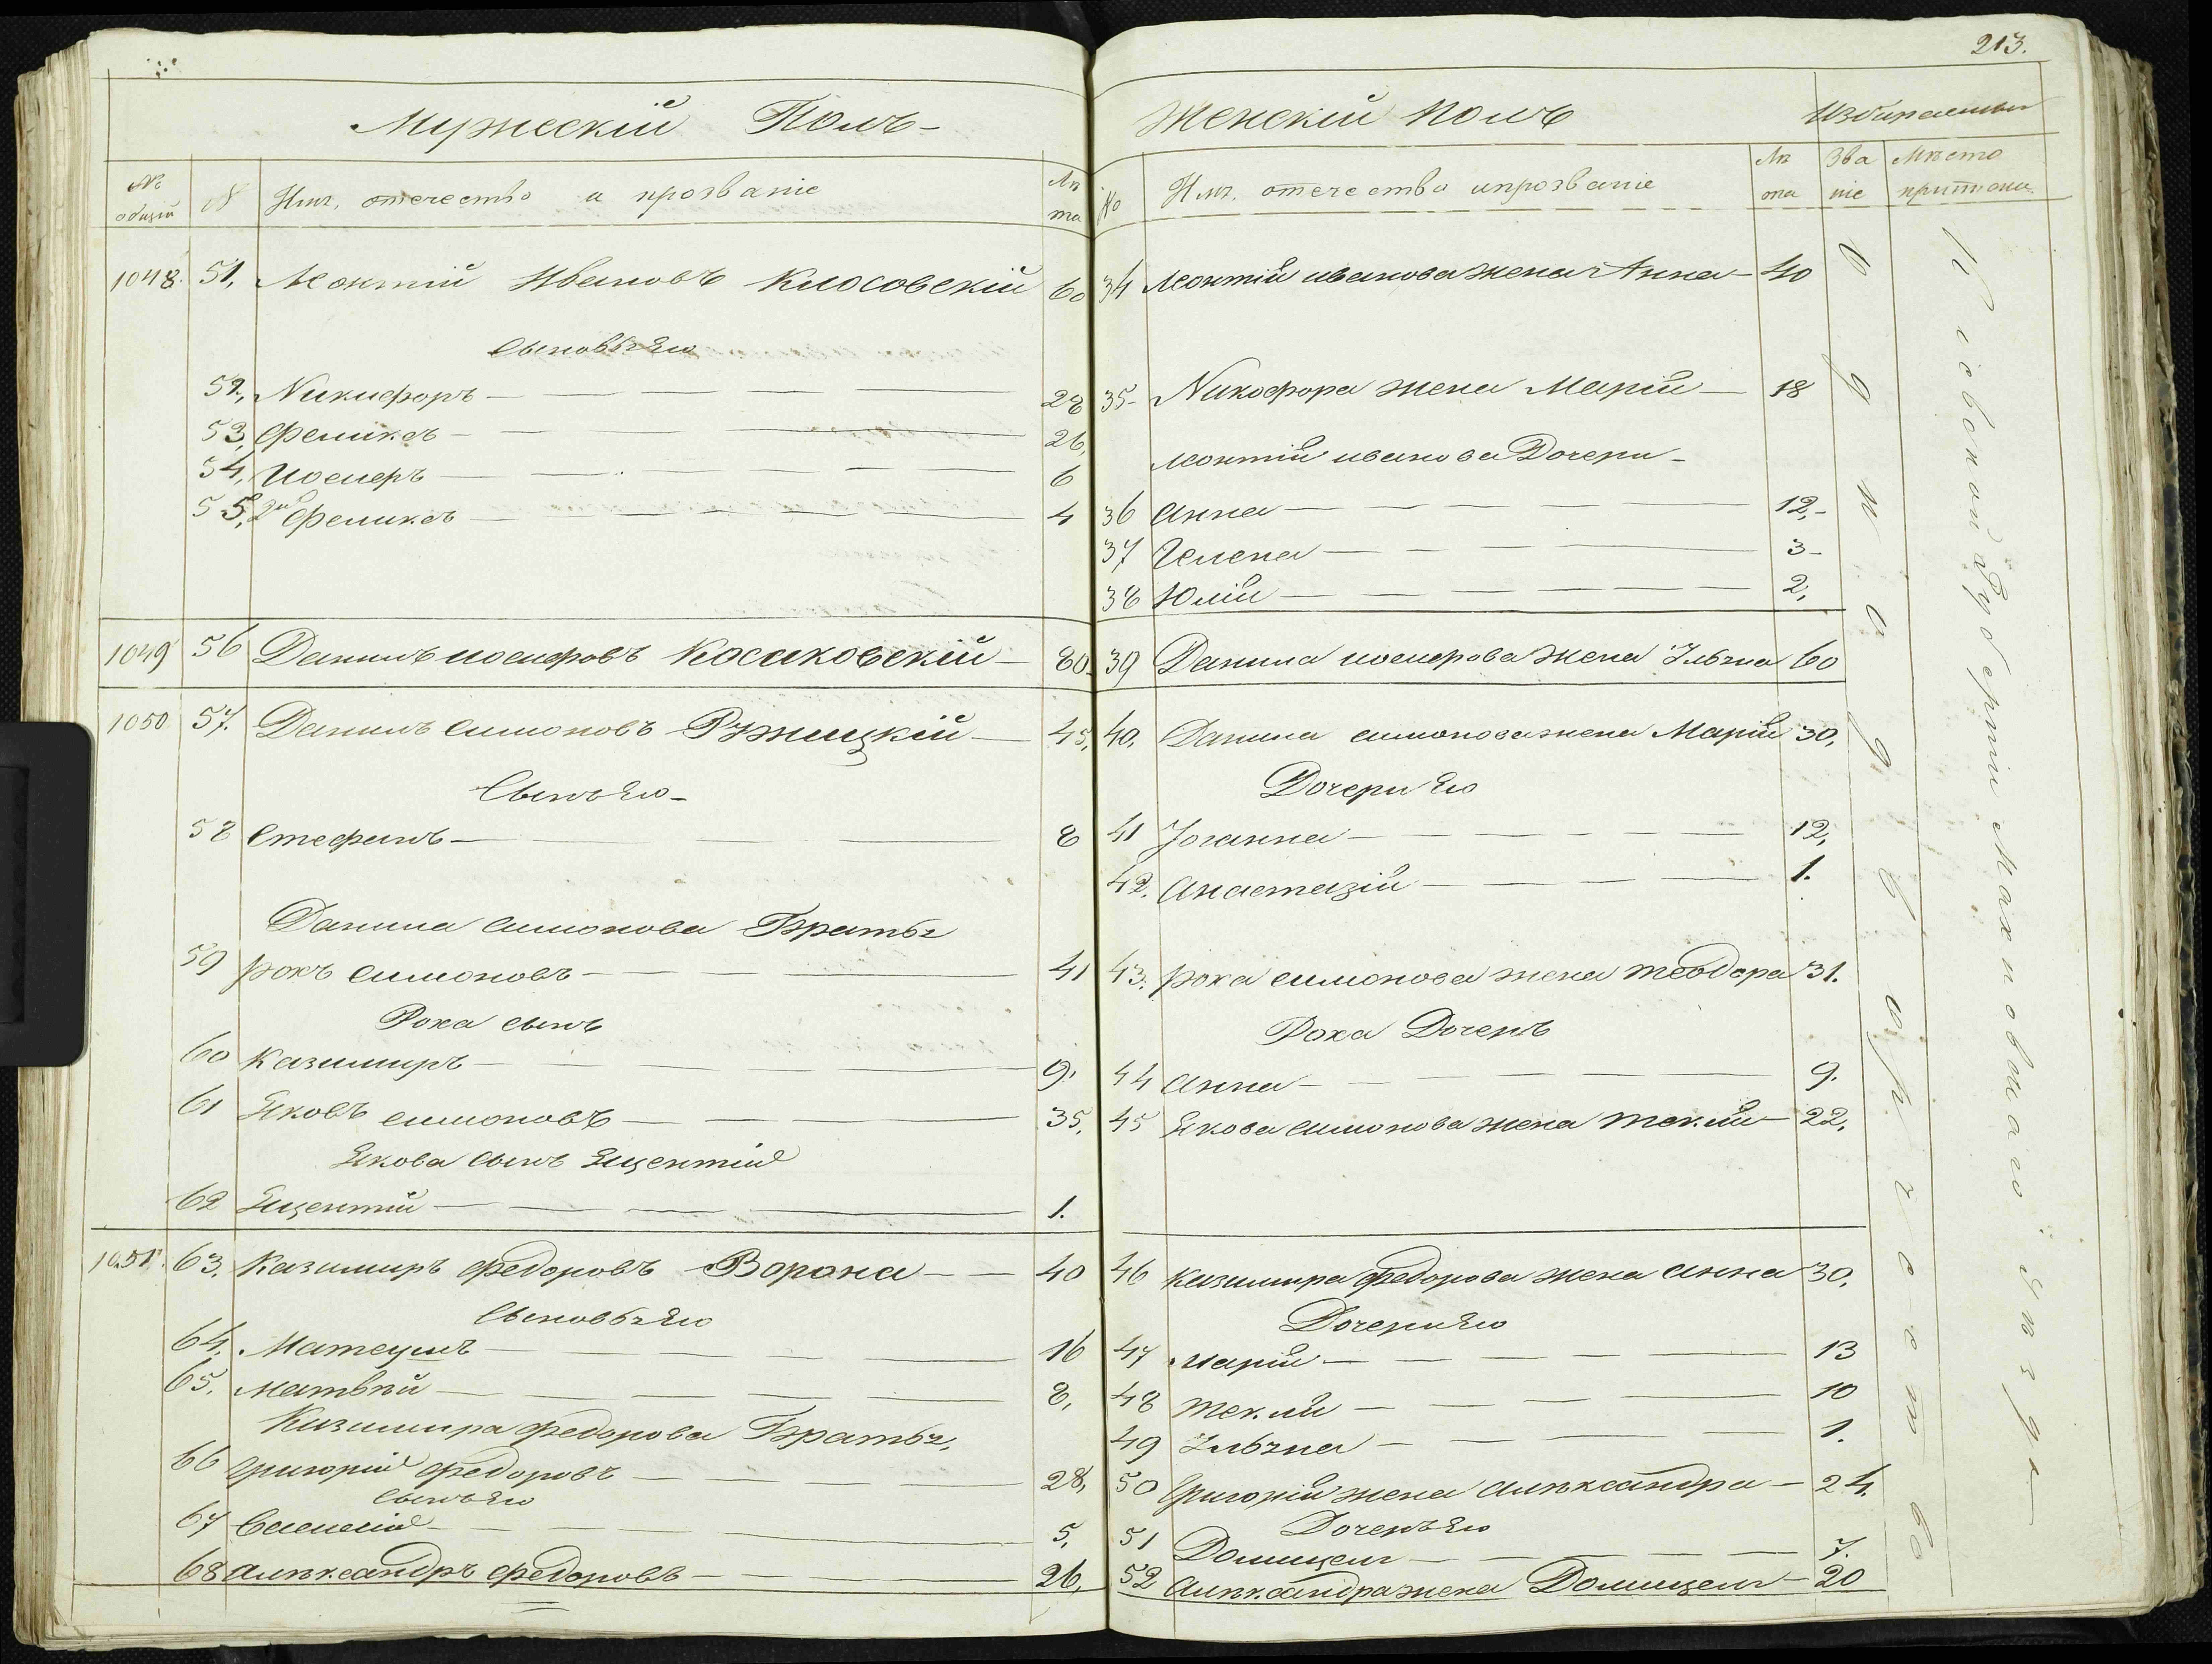 213.
Мужескій Полъ
№ общій № Имя, отечество и прозваніе Лѣта
1048. 51, Леонтій Ивановъ Клосовскій 60
Сыновья Его
52, Никифоръ 28
53, Феликсъ 26,
54, Иосифъ 6
55, 2й Феликсъ 4
1049 56 Данилъ иосифовъ Косаковскій 80
1050 57. Данилъ симоновъ Ружицкій 45,
Сынъ Его
58 Стефанъ 8
Данила симонова Братья
59 рокъ симоновъ 41
Рока сынъ
60 Казимиръ 9,
61 Яковъ симоновъ 35,
Якова сынъ Яцентій
62 Яцентій 1.
1051. 63. Казимиръ Федоровъ Ворона 40
Сыновья Его
64. Матеушъ 16
65. Матвѣй 8,
Казимира Федорова Братья,
66 Григорій Федоровъ 28,
Сынъ Его
67 5,
68 Алѣксандръ Федоровъ 26,
Женскій полъ Избираемыя
№ Имя, отечество ипрозваніе Лѣта Званіе Мѣсто
34 Леонтій иванова жена Анна 40
35 Никофора жена Марій 18
Леонтій иванова Дочери
36 анна 12,
37 Гелена 3
38 Юлій 2,
39 Данила иосифова жена Ульяна 60
40, Данила симонова жена Марій 30,
Дочери Его
41 Іоганна 12,
42. Анастазій 1.
43. рока симонова жена теодора 31.
Рока Дочень
44 анна 9.
45 Якова симонова жена теклій 22,
46 Казимира Федорова жена анна 30,
Дочери Его
47 марій 13
48 теклій 10
49 Ульяна 1.
50 Григорій жена алѣксандра 24.
Дочень Его
51 Домицеля 7.
52 Алѣксандра жена Домицеля 20
Вѣ однодворческомъ
Кіевской Губерніи Махновкаго уѣзда